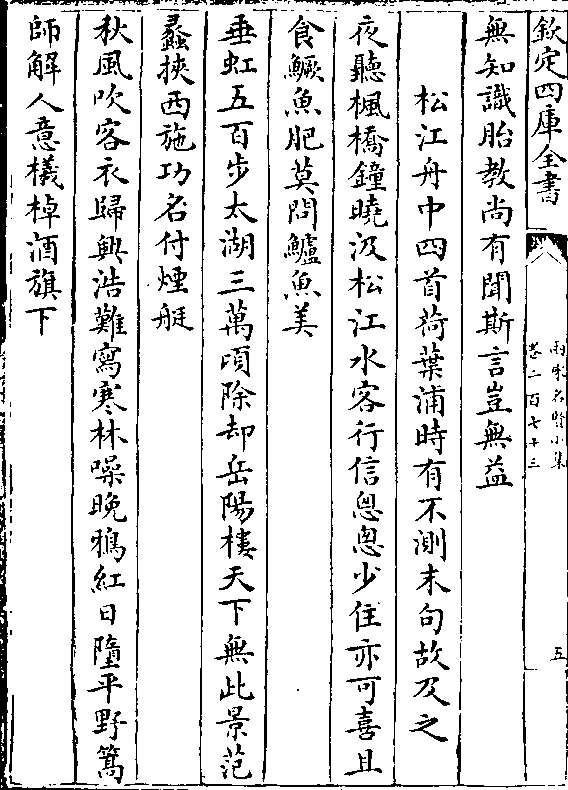 欽定四庫全書
兩宋名賢小集
卷二百七十三
五
無知識胎教尚有聞斯言豈無益
松江舟中四首荷葉浦時有不測末句故及之
夜聽楓橋鐘曉汲松江水客行信悤悤少住亦可喜且
食鱖魚肥莫問鱸魚美
垂虹五百步太湖三萬頃除却岳陽樓天下無此景范
蠡挾西施功名付煙艇
秋風吹客衣歸興浩難寫寒林噪晚鴉紅日墮平野篙
師解人意檥棹酒旗下